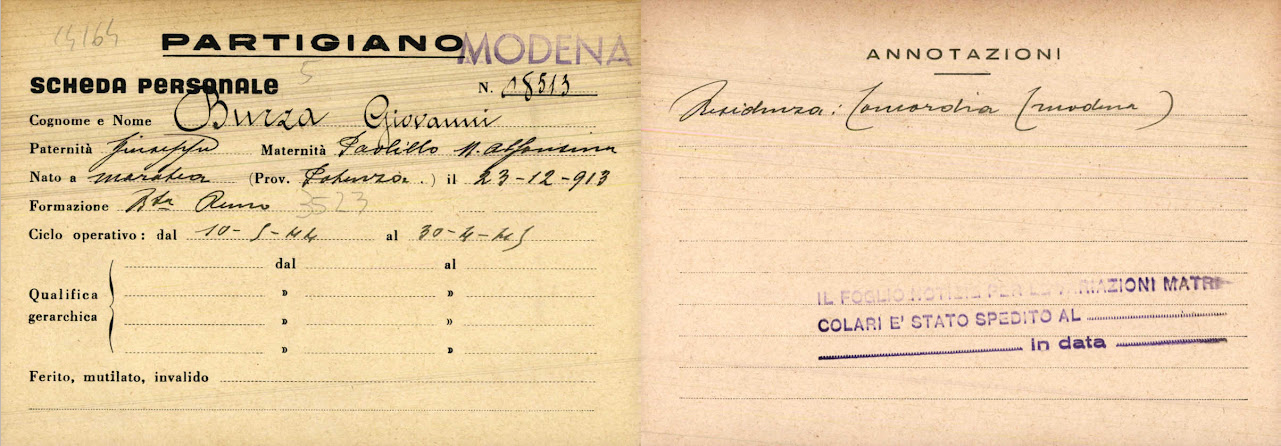 14164
PARTIGIANO MODENA
5
SCHEDA PERSONALE N. 08513
Cognome e Nome Burza Giovanni
Paternità Giuseppe Maternità Paolillo M. Alfonsina
Nato a maratea (Prov. Potenza ) il 23-12-913
Formazione Bta Remo 3523
Ciclo operativo: dal 10-5-44 al 30-4-45
dal al
Qualifica gerarchica
» »
» »
» »
Ferito, mutilato, invalido
ANNOTAZIONI
Residenza: Concordia (modena)
IL FOGLIO NOTIZIE PER LE VARIAZIONI MATRI
COLARI E' STATO SPEDITO AL
in data